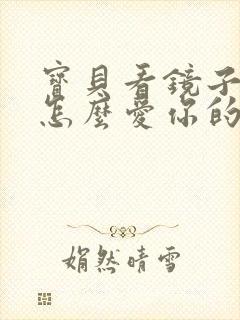 寶貝看鏡子
怎麼愛你的
娟然晴雪